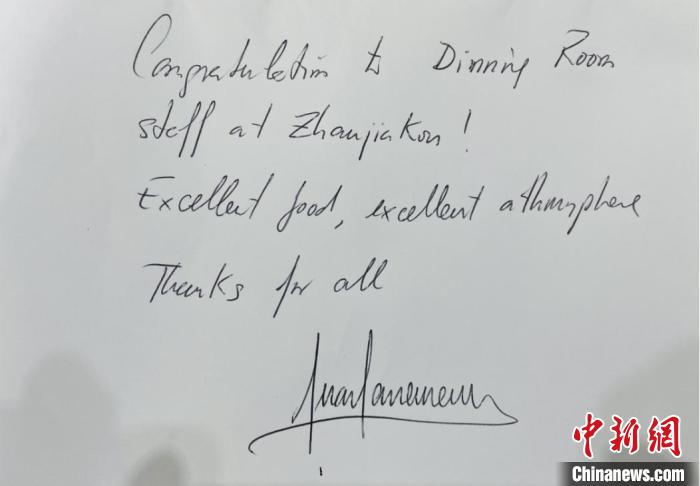 Congratulation to Dinning Room
staff at Zhanjiakou!
Excellent food, excellent athmosphere
Thanks for all
中新网
Chinanews.com